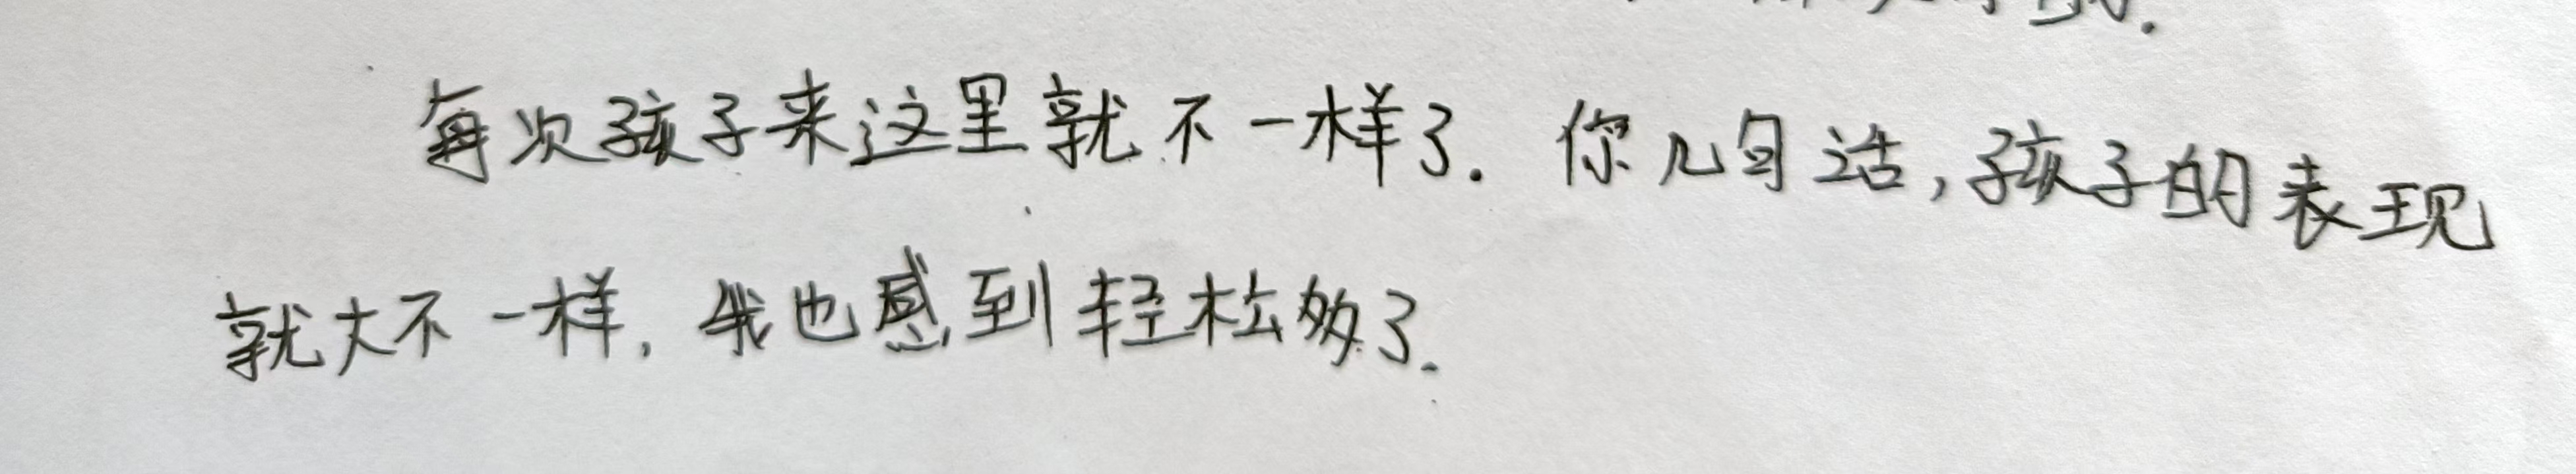 每次孩子来这里就不一样了.你几句话,孩子的表现
就大不一样,我也感到轻松多了.